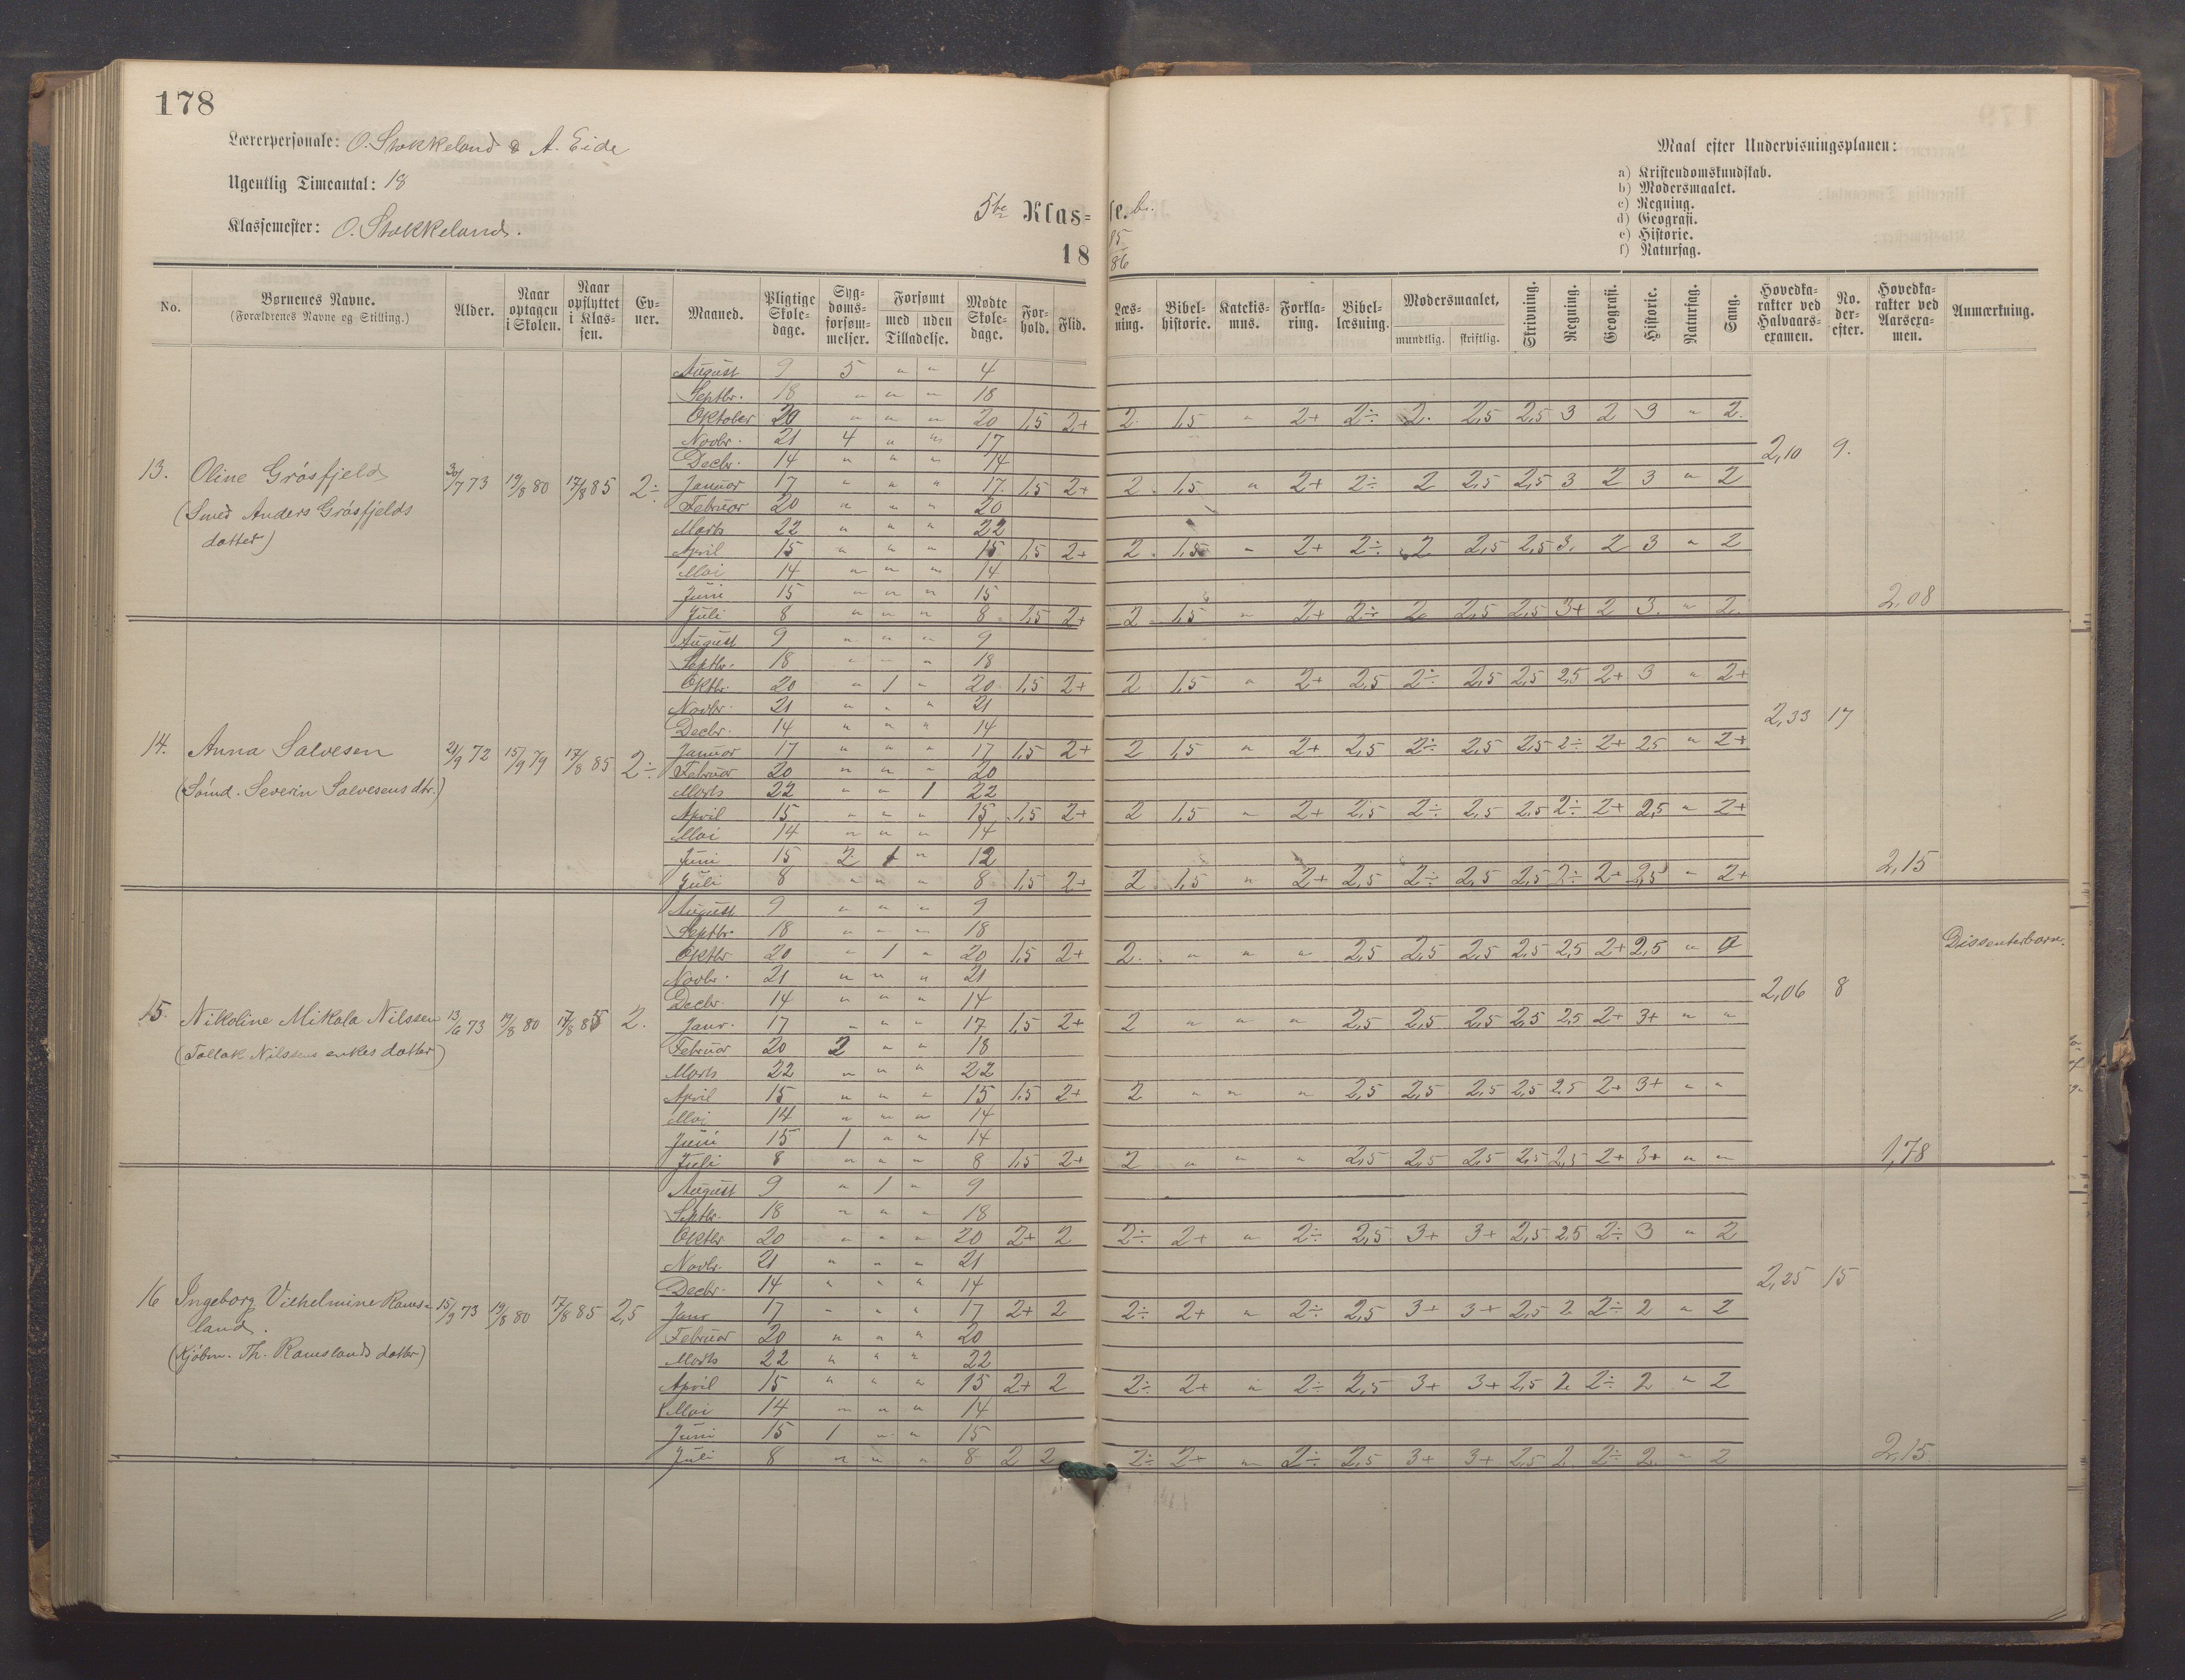 178
Lærerpersonale: O. Stokkeland & A. Eide
Ugentlig Timeantal: 18
Klassemester: O. Stokkeland.
5te Klas= se. b.
18 85/86
Maal efter Undervisningsplanen:
a) Kristendomskundskab.
b) Modersmaalet.
c) Regning.
d) Geografi.
e) Historie.
f) Naturfag.
No. | Børnenes Navne. (Forældrenes Navne og Stilling.) | Alder. | Naar optagen i Skolen. | Naar opflyttet i Klassen. | Evner. | Maaned. | Pligtige Skoledage. | Sygdomsforsømmelser. | Forsømt med / uden Tilladelse. | Mødte Skoledage. | Forhold. | Flid. | Læsning. | Bibelhistorie. | Katekismus. | Forklaring. | Bibellæsning. | Modersmaalet, mundtlig. skriftlig. | Skrivning. | Regning. | Geografi. | Historie. | Naturfag. | Sang. | Hovedkarakter ved Halvaarsexamen. | No. derefter. | Hovedkarakter ved Aarsexamen. | Anmærkning.
13. Oline Grösfjeld (Smed Anders Grösfjelds datter) 30/7 73 19/8 80 17/8 85 2÷
August 9 5 " " 4
Septbr. 18 " " " 18
Oktober 20 " " " 20 1,5 2+ 2 1,5 " 2+ 2÷ 2 2,5 2,5 3 2 3 " 2
Novbr. 21 4 " " 17
Decbr. 14 " " " 14 2,10 9.
Januar 17 " " " 17 1,5 2+ 2 1,5 " 2+ 2÷ 2 2,5 2,5 3 2 3 " 2
Februar 20 " " " 20
Marts 22 " " " 22
April 15 " " " 15 1,5 2+ 2 1,5 " 2+ 2÷ 2 2,5 2,5 3 2 3 " 2
Mai 14 " " " 14
Juni 15 " " " 15
Juli 8 " " " 8 1,5 2+ 2 1,5 " 2+ 2÷ 2 2,5 2,5 3+ 2 3 " 2 2,08
14. Anna Salvesen (Sömd. Severin Salvesens dtr.) 21/9 72 15/9 79 17/8 85 2÷
August 9 " " " 9
Septbr. 18 " " " 18
Oktbr. 20 " 1 " 20 1,5 2+ 2 1,5 " 2+ 2,5 2÷ 2,5 2,5 2,5 2+ 3 " 2+
Novbr. 21 " " " 21 2,33 17
Decbr. 14 " " " 14
Januar 17 " " " 17 1,5 2+ 2 1,5 " 2+ 2,5 2÷ 2,5 2,5 2÷ 2+ 2,5 " 2+
Februar 20 " " " 20
Marts 22 " " 1 22
April 15 " " " 15 1,5 2+ 2 1,5 " 2+ 2,5 2÷ 2,5 2,5 2÷ 2+ 2,5 " 2+
Mai 14 " " " 14
Juni 15 2 1 " 12
Juli 8 " " " 8 1,5 2+ 2 1,5 " 2+ 2,5 2÷ 2,5 2,5 2÷ 2+ 2,5 " 2+ 2,15
15. Nikoline Mikala Nilssen (Tallak Nilssens enkes datter) 13/6 73 19/8 80 17/8 85 2.
August 9 " " " 9
Septbr. 18 " " " 18 Dissenterbarn.
Oktbr. 20 " 1 " 20 1,5 2+ 2 " " " 2,5 2,5 2,5 2,5 2,5 2+ 2,5 "
Novbr. 21 " " " 21
Decbr. 14 " " " 14 2,06 8
Janr. 17 " " " 17 1,5 2+ 2 " " " 2,5 2,5 2,5 2,5 2,5 2+ 3+ " "
Februar 20 2 " " 18
Marts 22 " " " 22
April 15 " " " 15 1,5 2+ 2 " " " 2,5 2,5 2,5 2,5 2,5 2+ 3+ " "
Mai 14 " " " 14
Juni 15 1 " " 14
Juli 8 " " " 8 1,5 2+ 2 " " " 2,5 2,5 2,5 2,5 2,5 2+ 3+ " " 1,78
16 Ingeborg Vilhelmine Ramsland. (Kjöbm. Th. Ramslands datter) 15/9 73 19/8 80 17/8 85 2,5
August 9 " 1 " 9
Septbr. 18 " " " 18
Oktbr 20 " " " 20 2+ 2 2÷ 2+ " 2÷ 2,5 3+ 3+ 2,5 2,5 2÷ 3 " 2
Novbr. 21 " " " 21
Decbr. 14 " " " 14 2,25 15
Janr 17 " " " 17 2+ 2 2÷ 2+ " 2÷ 2,5 3+ 3+ 2,5 2 2÷ 2 " 2
Februar 20 " " " 20
Marts 22 " " " 22
April 15 " " " 15 2+ 2 2÷ 2+ " 2÷ 2,5 3+ 3+ 2,5 2 2÷ 2 " 2
Mai 14 " " " 14
Juni 15 1 " " 15
Juli 8 " " " 8 2 2 2÷ 2+ " 2÷ 2,5 3+ 3+ 2,5 2 2÷ 2 " 2 2,15